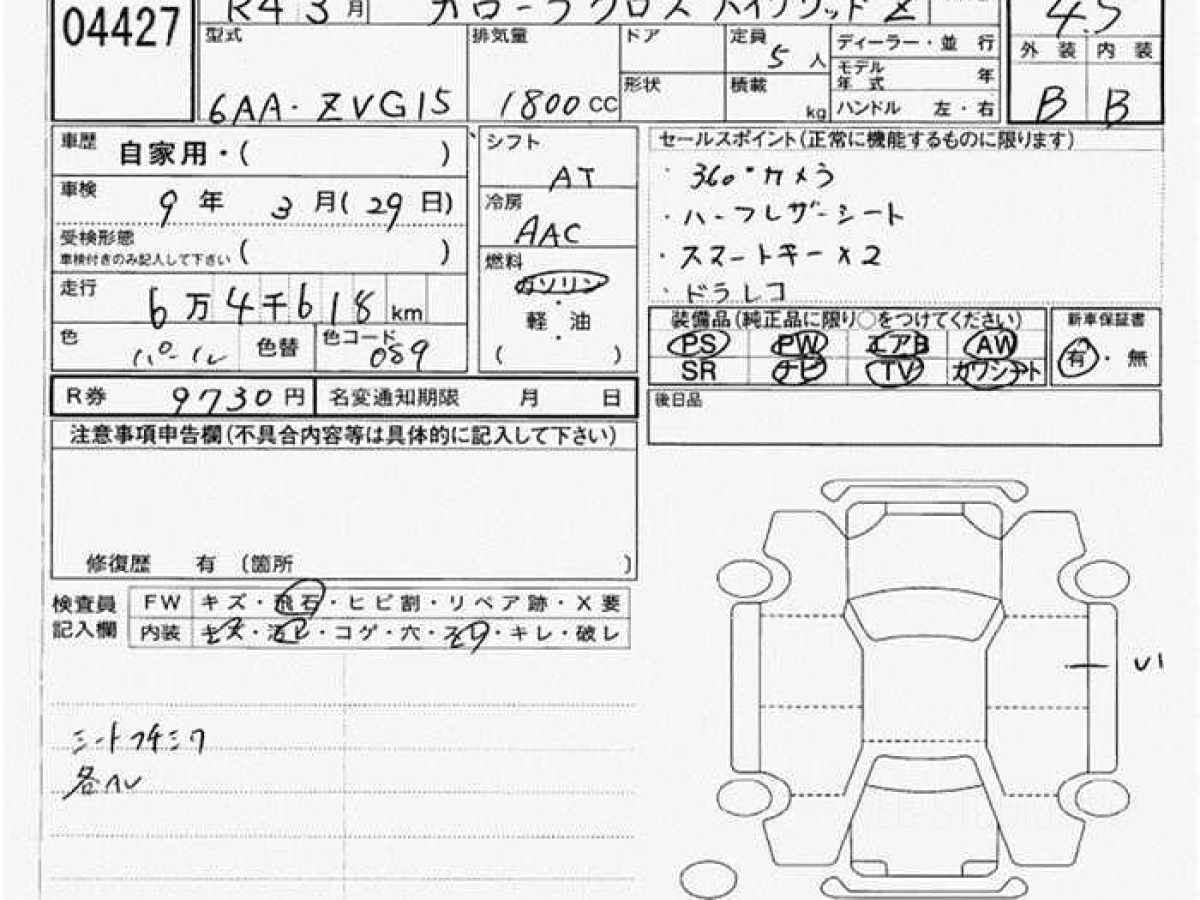 04427
R4 3月 カローラクロス ハイブリッド Z
4.5
型式 6AA・ZVG15
排気量 1800 CC
ドア
形状
定員 5 人
積載 kg
ディーラー・並 行
モデル年式 年
ハンドル 左・右
外 装 内 装
B B
車歴 自家用・( )
車検 9年 3月(29日)
受検形態 ( )
車検付きのみ記入して下さい
走行 6万4千618 km
色 パール 色替 色コード 089
シフト AT
冷房 AAC
燃料 ガソリン
・
軽 油
・
( )
セールスポイント(正常に機能するものに限ります)
・360°カメラ
・ハーフレザーシート
・スマートキー×2
・ドラレコ
装備品(純正品に限り○をつけてください)
PS PW エアB AW
SR ナビ TV カワシート
新車保証書
有・無
R券 9730 円 名変通知期限 月 日
後日品
注意事項申告欄(不具合内容等は具体的に記入して下さい)
修復歴 有 (箇所 )
検査員記入欄
FW キズ・飛石・ヒビ割・リペア跡・X要
内装 キズ・汚れ・コゲ・穴・スレ・キレ・破レ
シートフチシワ
各ヘレ